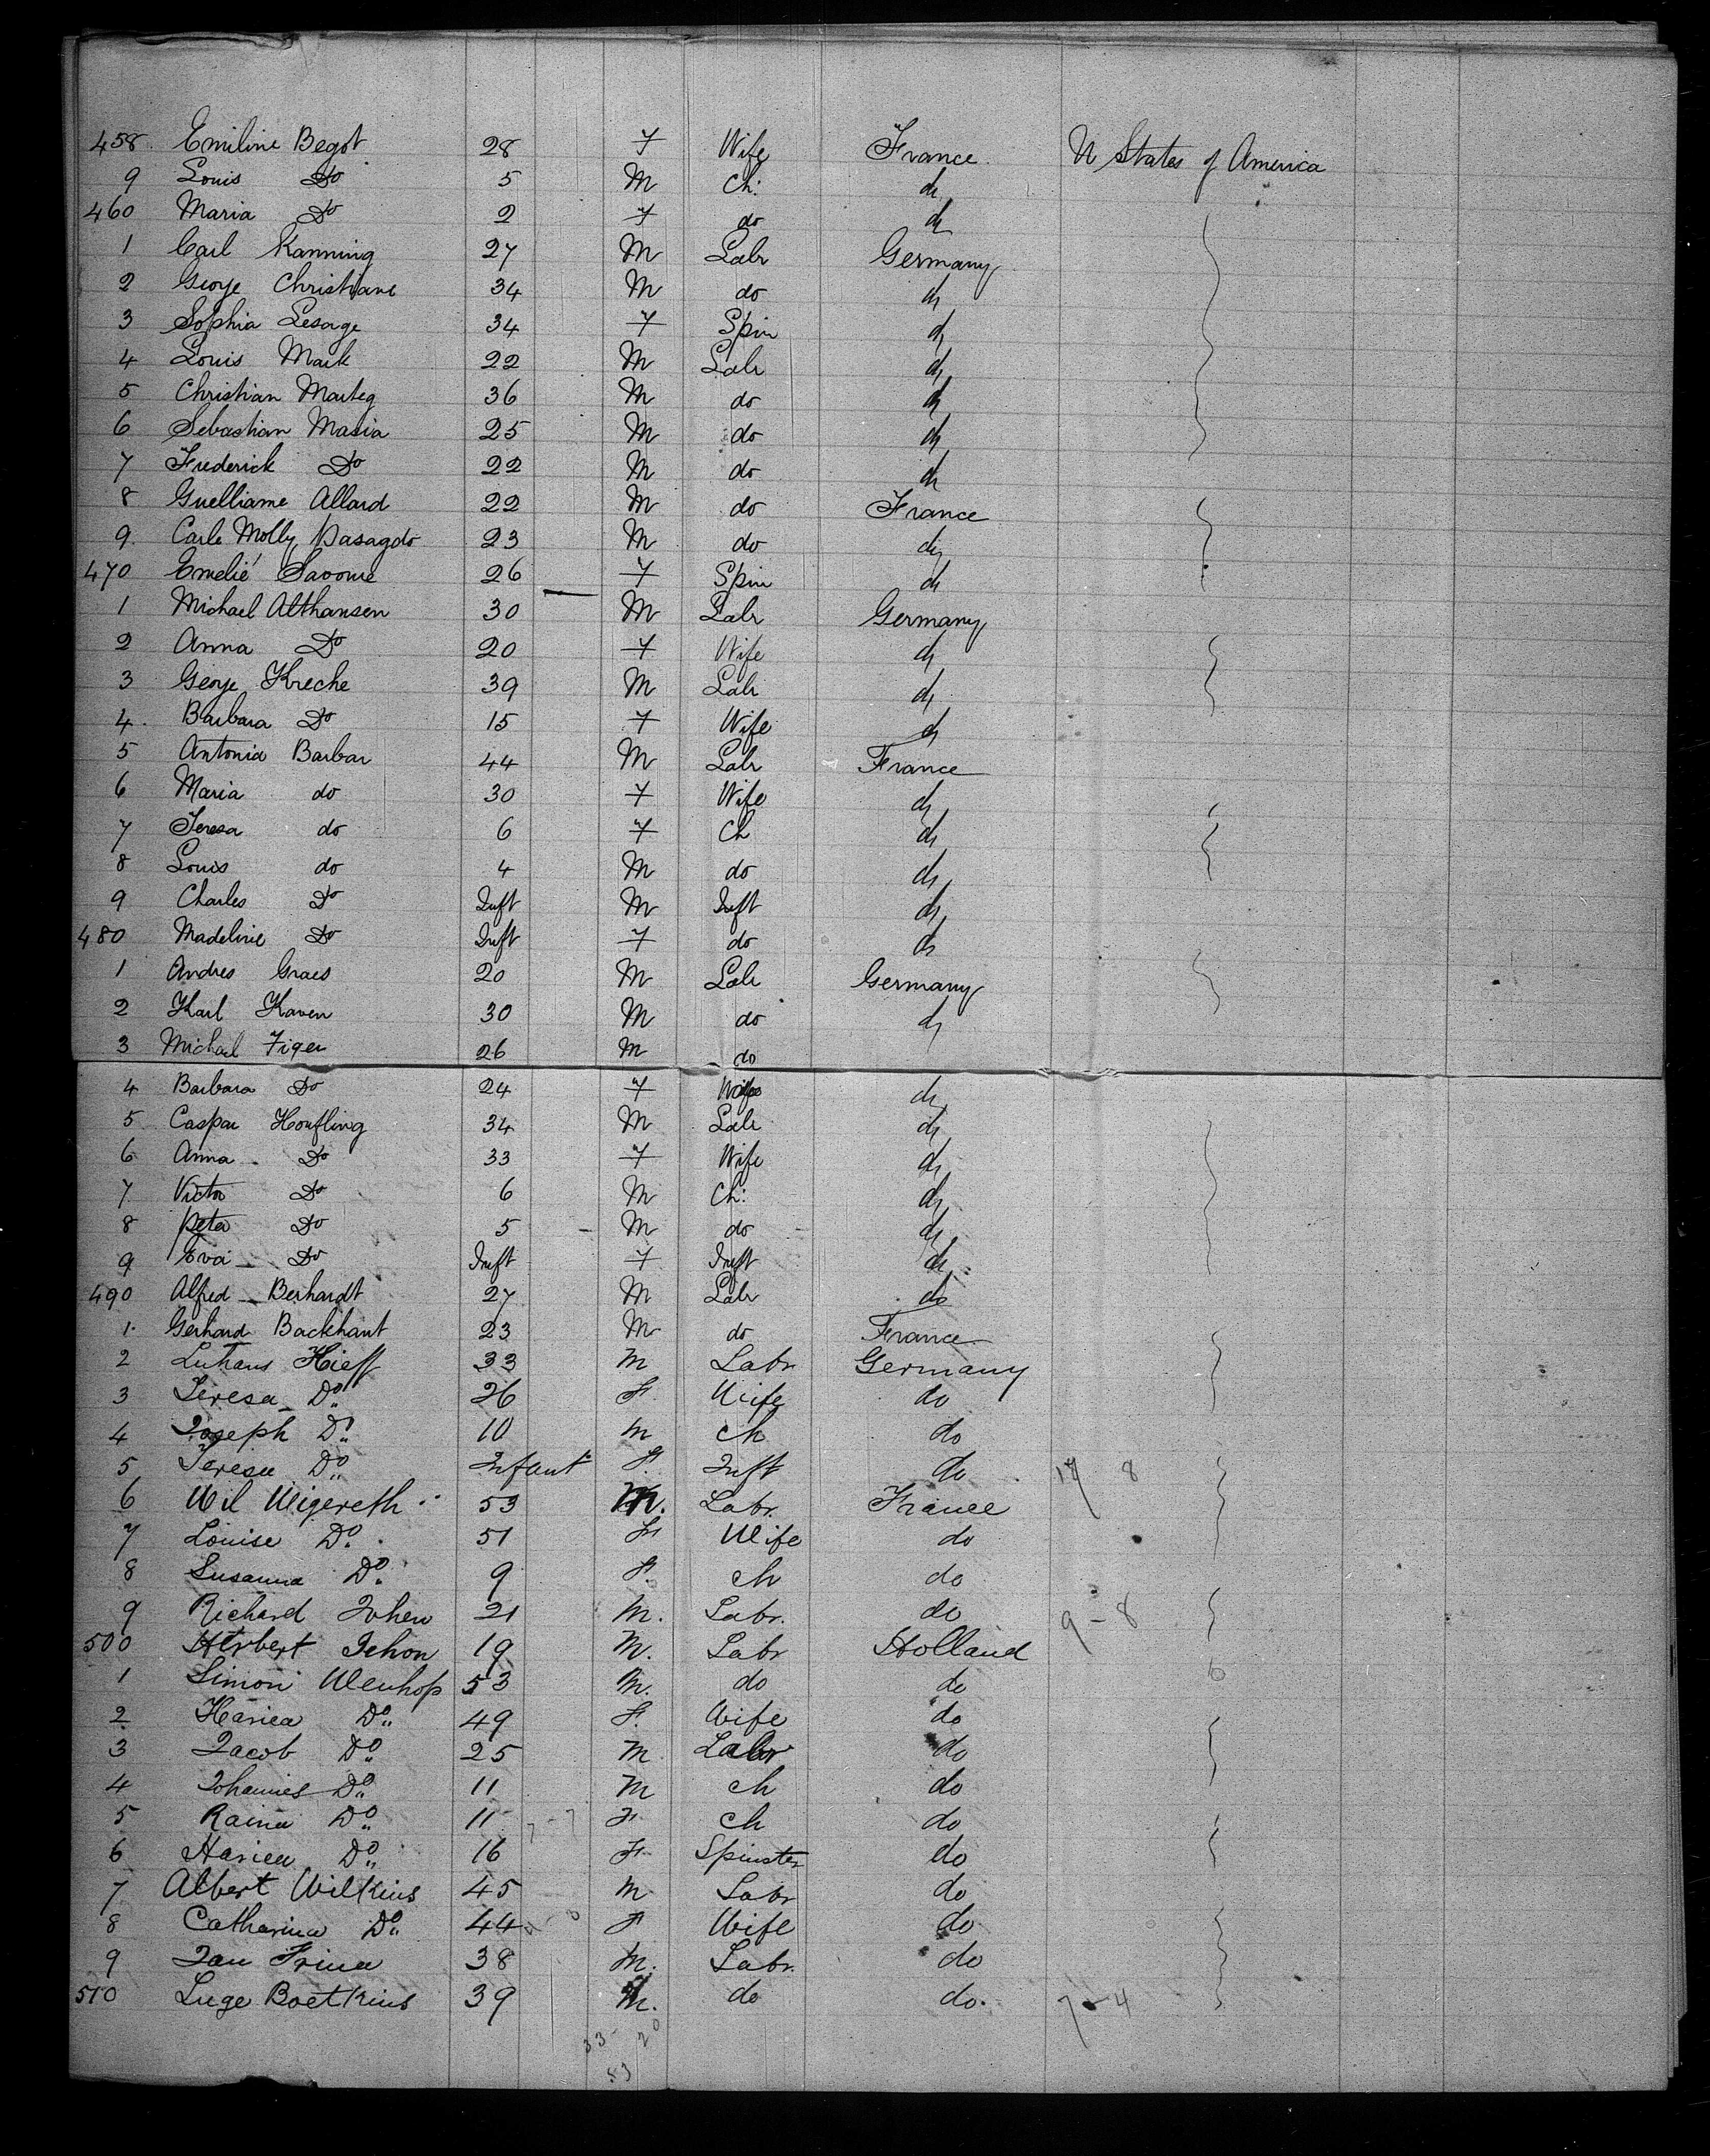 458. Emiline Begot 28 F Wife France. U States of America
9 Louis Do 5 M Ch: do
460 Maria Do 2 F do do
1 Carl Kanning 27 M Labr Germany
2 George Christiane 34 M do do
3 Sophia Lesage 34 F Spin do
4 Louis Mark 22 M Labr do
5 Christian Marteg 36 M do do
6 Sebastian Masia 25 M do do
7 Frederick Do 22 M do do
8 Guelliame Allard 22 M do France
9. Carle Molly Dasagdo 23 M do do
470 Emelié Savome 26 F Spin do
1 Michael Althansen 30 M Labr Germany
2 Anna Do 20 F Wife do
3 George Kreche 39 M Labr do
4. Barbara Do 15 F Wife do
5 Antonia Barbar 44 M Labr France
6 Maria do 30 F Wife do
7 Teresa do 6 F Ch do
8 Louis do 4 M do do
9 Charles Do Inft M Inft do
480 Madeline Do Inft F do do
1 Andres Graes 20 M Labr Germany
2 Karl Kaven 30 M do do
3 Michael Figer 26 M do
4 Barbara Do 24 F Wife do
5 Caspar Houfling 34 M Labr do
6 Anna Do 33 F Wife do
7 Victor Do 6 M Ch: do
8 Peter Do 5 M do do
9 Eva Do Inft F Inft do
490 Alfred Berhardt 27 M Labr do
1. Gerhard Backhant 23 M do France
2 Luhans Hieff 33 M Labr Germany
3 Teresa Do 26 F Wife do
4 Joseph Do 10 M ch do
5 Teresa Do Infant F. Inft do 17 8
6 Wil Wigereth 53 M. Labr. France
7 Louise Do 51 F Wife do
8 Susanna Do 9 F. ch do
9 Richard Johen 21 M. Labr. do 9-8
500 Herbert Jehon 19 M. Labr Holland
1 Simon Wenhop 53 M. do do
2 Hariea Do 49 F. Wife do
3 Jacob Do 25 M Labr do
4 Johannes Do 11 M ch do
5 Raina Do 11 7-7 F ch do
6 Hariea Do 16 F Spinster do
7 Albert Wilkins 45 M Labr do
8 Catharina Do 44 F Wife do
9 Jan Frina 38 M. Labr. do
510 Luge Boetkins 39 M. do do. 7-4
33- 20
53